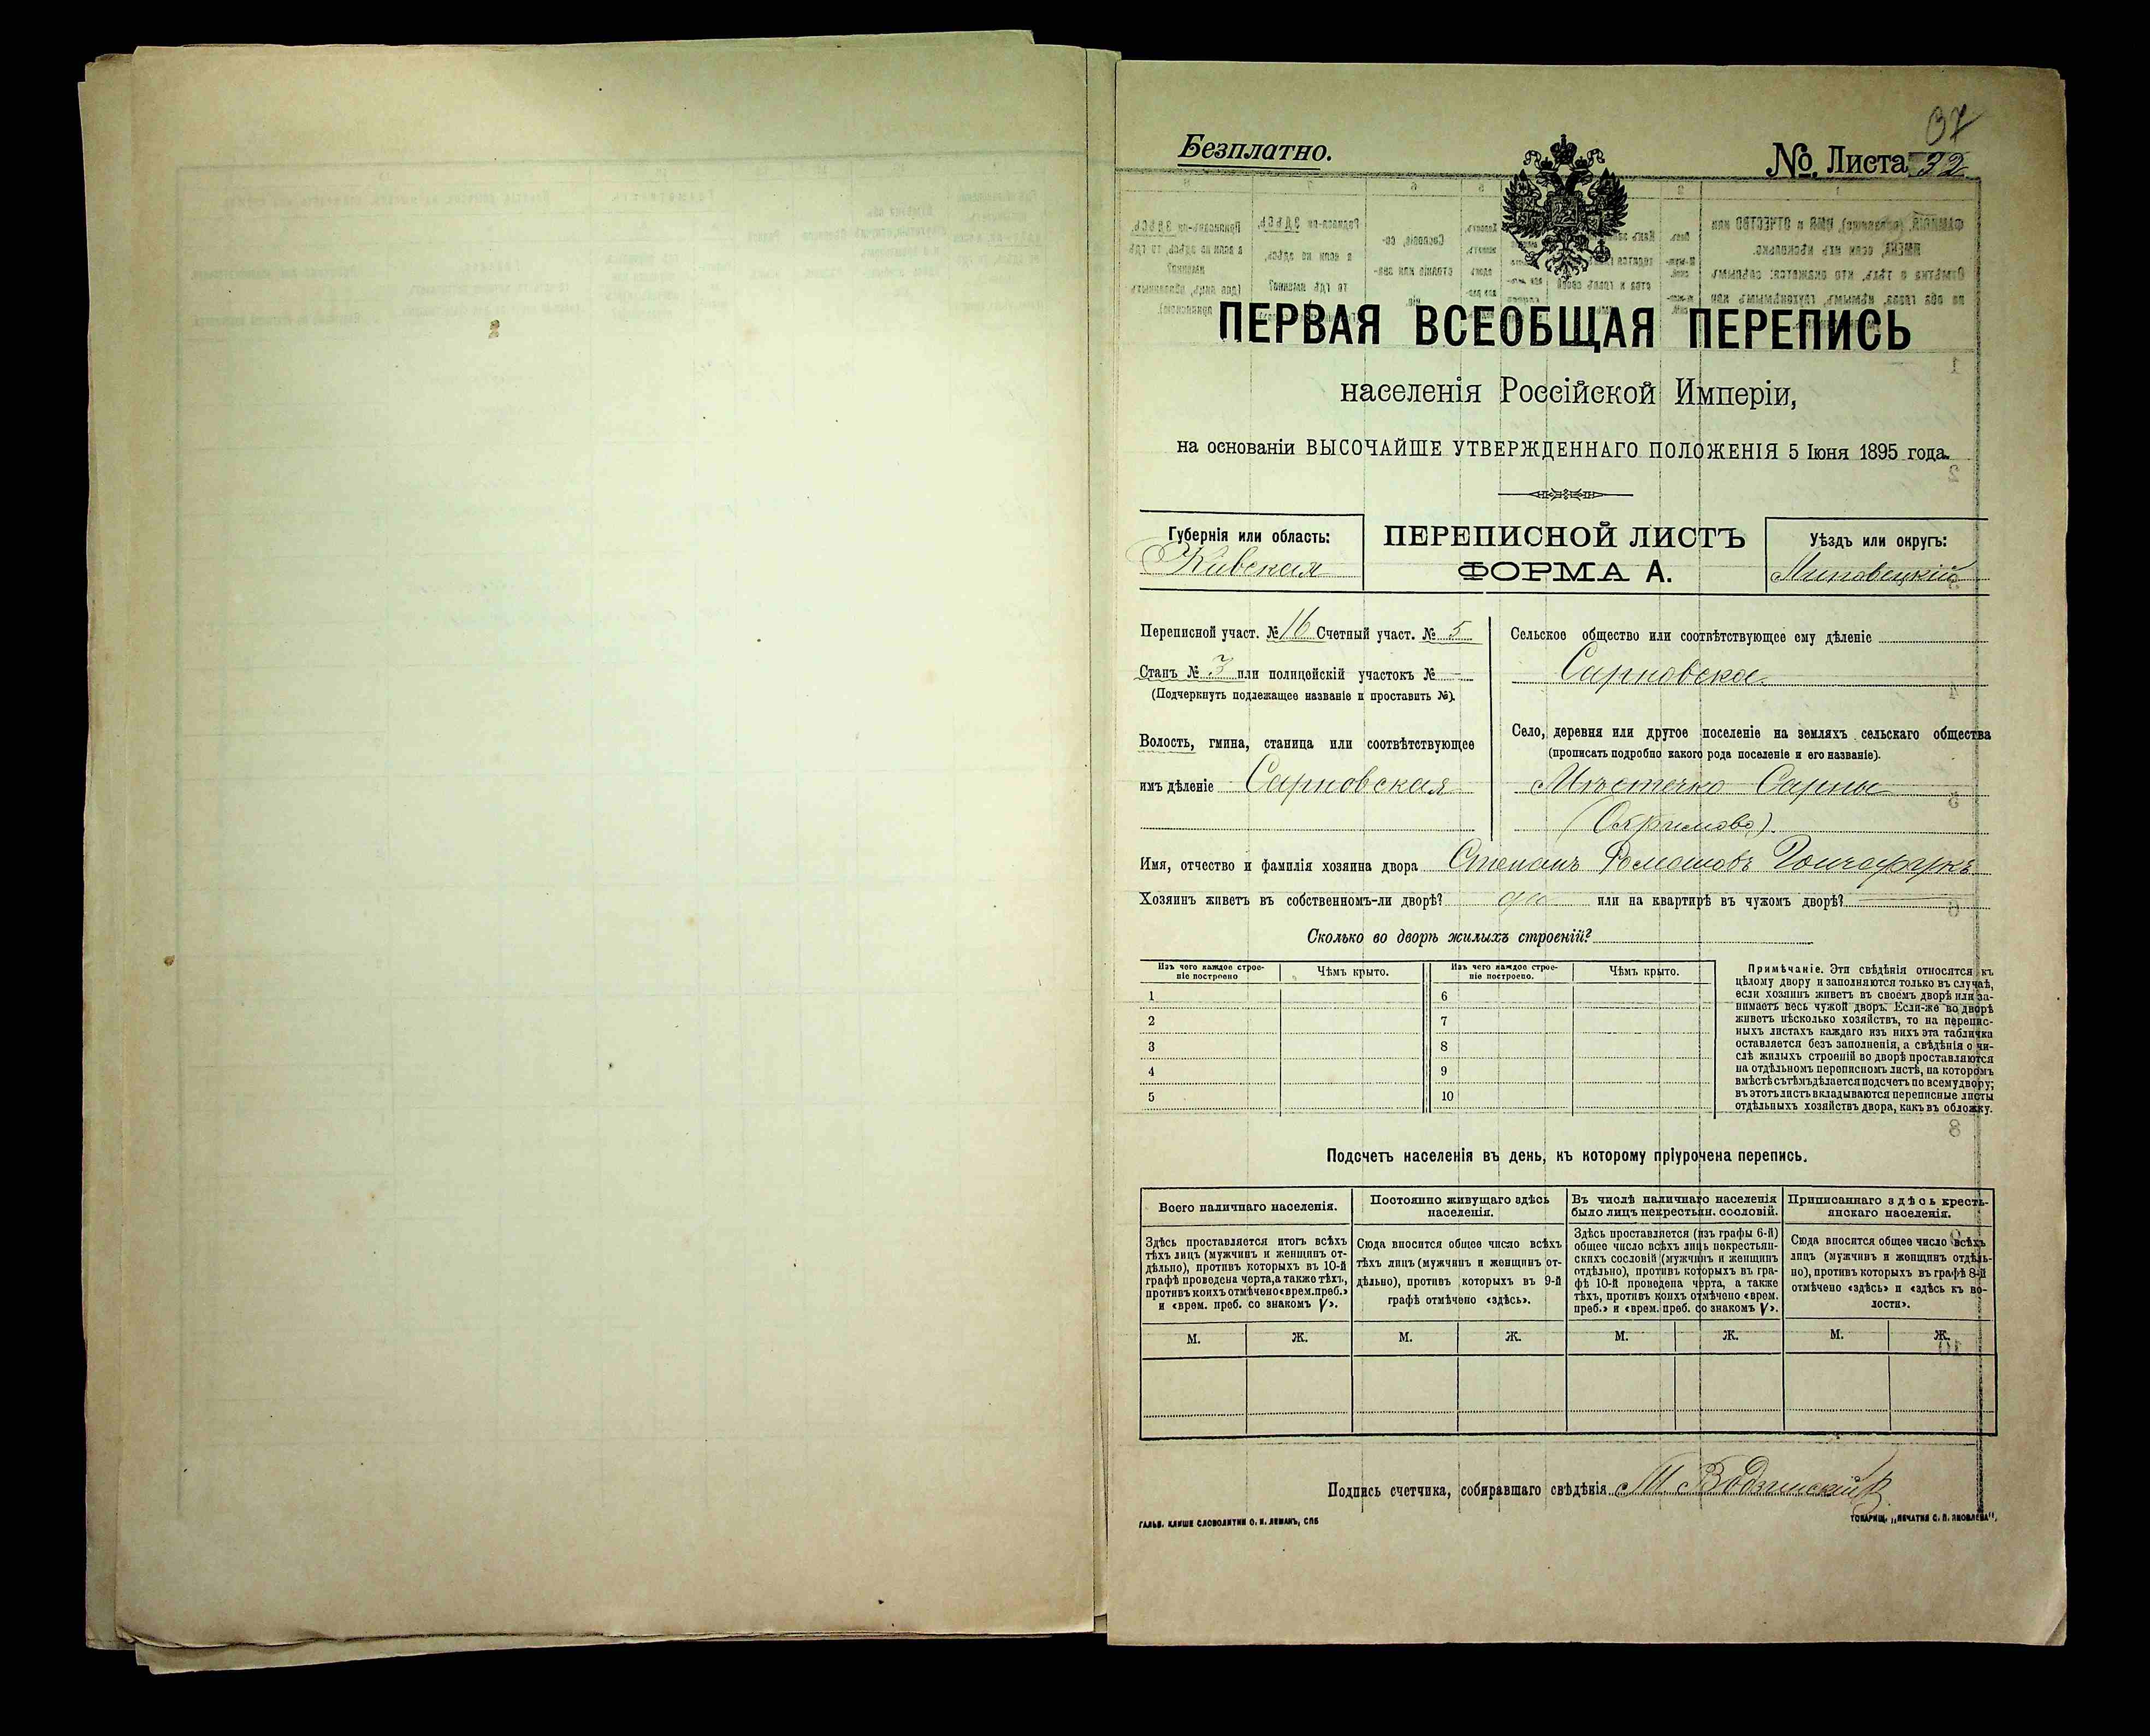 37
Безплатно.
№ Листа 32
ПЕРВАЯ ВСЕОБЩАЯ ПЕРЕПИСЬ
населенія Россійской Имперіи,
на основаніи ВЫСОЧАЙШЕ УТВЕРЖДЕННАГО ПОЛОЖЕНІЯ 5 Іюня 1895 года.
Губернія или область:
Кіевская
ПЕРЕПИСНОЙ ЛИСТЪ
ФОРМА А.
Уѣздъ или округъ:
Липовецкій
Переписной участ. № 16 Счетный участ. № 5
Станъ № 3 или полицейскій участокъ № —
(Подчеркнуть подлежащее названіе и проставить №).
Волость, гмина, станица или соотвѣтствующее
имъ дѣленіе Сарновская
Сельское общество или соотвѣтствующее ему дѣленіе
Сарновское
Село, деревня или другое поселеніе на земляхъ сельскаго общества
(прописать подробно какого рода поселеніе и его названіе).
Мѣстечко Сарны
Имя, отчество и фамилія хозяина двора Степанъ Романовъ
Хозяинъ живетъ въ собственномъ-ли дворѣ? да или на квартирѣ въ чужомъ дворѣ? —
Сколько во дворѣ жилыхъ строеній?
Изъ чего каждое строе-
ніе построено
Чѣмъ крыто.
Изъ чего каждое строе-
ніе построено.
Чѣмъ крыто.
1 6
2 7
3 8
4 9
5 10
Примѣчаніе. Эти свѣдѣнія относятся къ
цѣлому двору и заполняются только въ случаѣ,
если хозяинъ живетъ въ своемъ дворѣ или за-
нимаетъ весь чужой дворъ. Если-же во дворѣ
живетъ нѣсколько хозяйствъ, то на перепис-
ныхъ листахъ каждаго изъ нихъ эта табличка
оставляется безъ заполненія, а свѣдѣнія о чи-
слѣ жилыхъ строеній во дворѣ проставляются
на отдѣльномъ переписномъ листѣ, на которомъ
вмѣстѣ съ тѣмъ дѣлается подсчетъ по всему двору;
въ этотъ листъ вкладываются переписные листы
отдѣльныхъ хозяйствъ двора, какъ въ обложку.
Подсчетъ населенія въ день, къ которому пріурочена перепись.
Всего наличнаго населенія.
Здѣсь проставляется итогъ всѣхъ
тѣхъ лицъ (мужчинъ и женщинъ от-
дѣльно), противъ которыхъ въ 10-й
графѣ проведена черта, а также тѣхъ,
противъ коихъ отмѣчено «врем. преб.»
и «врем. преб. со знакомъ V».
М. Ж.
Постоянно живущаго здѣсь
населенія.
Сюда вносится общее число всѣхъ
тѣхъ лицъ (мужчинъ и женщинъ от-
дѣльно), противъ которыхъ въ 9-й
графѣ отмѣчено «здѣсь».
М. Ж.
Въ числѣ наличнаго населенія
было лицъ некрестьян. сословій.
Здѣсь проставляется (изъ графы 6-й)
общее число всѣхъ лицъ некрестьян-
скихъ сословій (мужчинъ и женщинъ
отдѣльно), противъ которыхъ въ гра-
фѣ 10-й проведена черта, а также
тѣхъ, противъ коихъ отмѣчено «врем.
преб.» и «врем. преб. со знакомъ V».
М. Ж.
Приписаннаго здѣсь кресть-
янскаго населенія.
Сюда вносится общее число всѣхъ
лицъ (мужчинъ и женщинъ отдѣль-
но), противъ которыхъ въ графѣ 8-й
отмѣчено «здѣсь» и «здѣсь къ во-
лости».
М. Ж.
Подпись счетчика, собиравшаго свѣдѣнія
ГАЛЬВ. КЛИШЕ СЛОВОЛИТНИ О. И. ЛЕМАНЪ, СПБ
ТОВАРИЩ. „ПЕЧАТНЯ С. П. ЯКОВЛЕВА".